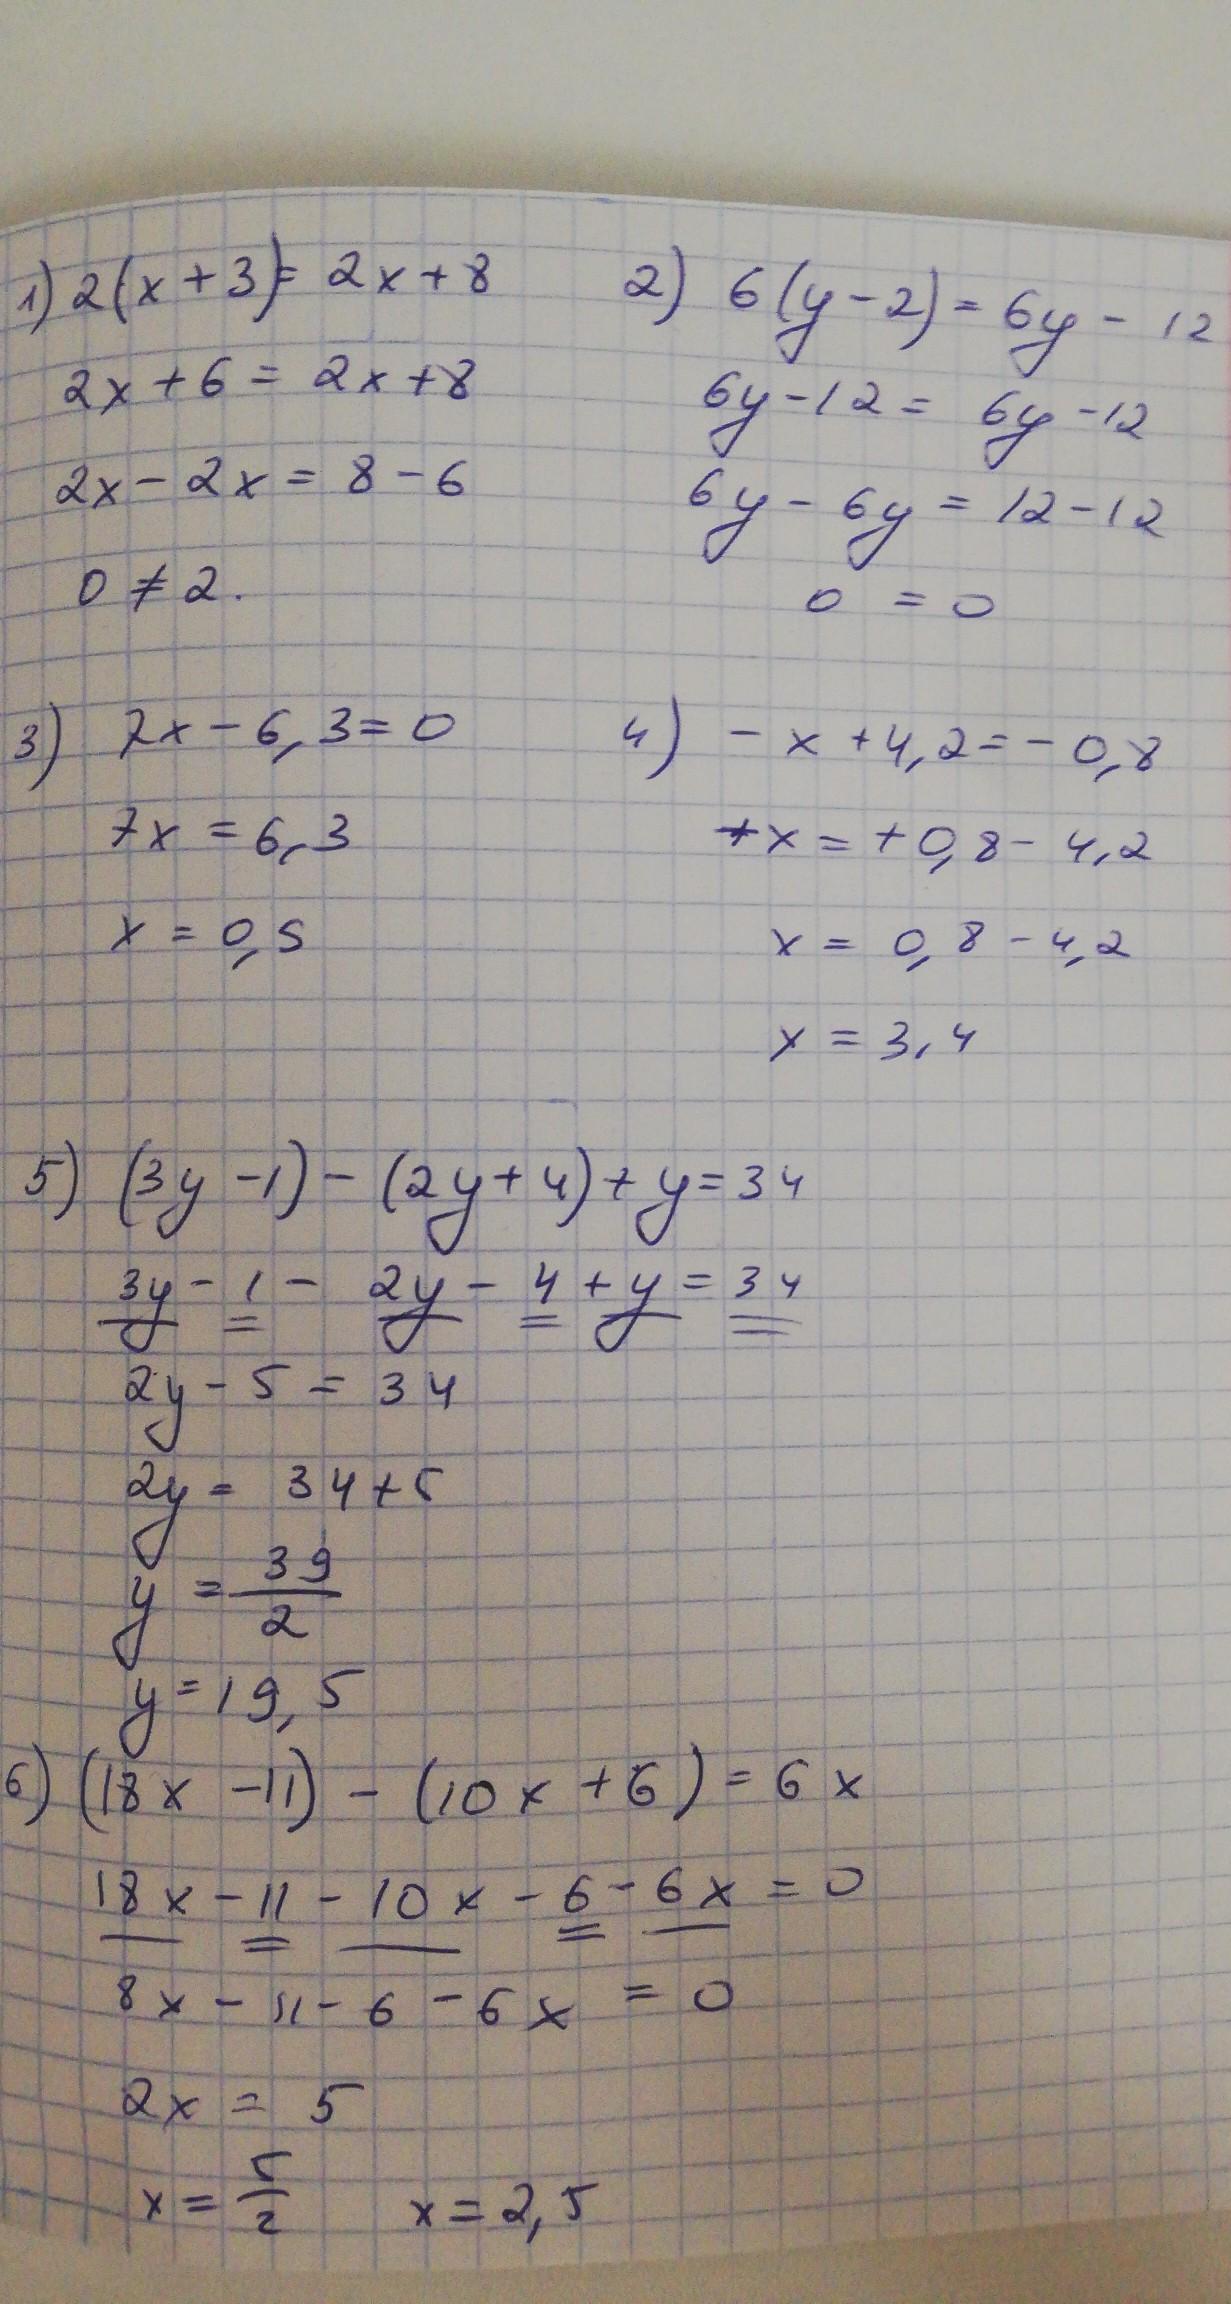 1) 2(x+3)= 2x+8
2x+6 = 2x+8
2x-2x = 8-6
0 ≠ 2.
2) 6(y-2)=6y-12
6y-12= 6y-12
6y-6y = 12-12
0 = 0
3) 7x-6,3=0
7x = 6,3
x = 0,5
4) -x+4,2=-0,8
+x = +0,8-4,2
x = 0,8-4,2
x = 3,4
5) (3y-1)-(2y+4)+y=34
3y-1-2y-4+y=34
2y-5=34
2y= 34+5
y = 39/2
y=19,5
6) (18x-11)-(10x+6)=6x
18x-11-10x-6-6x=0
8x-11-6-6x = 0
2x = 5
x = 5/2 x=2,5